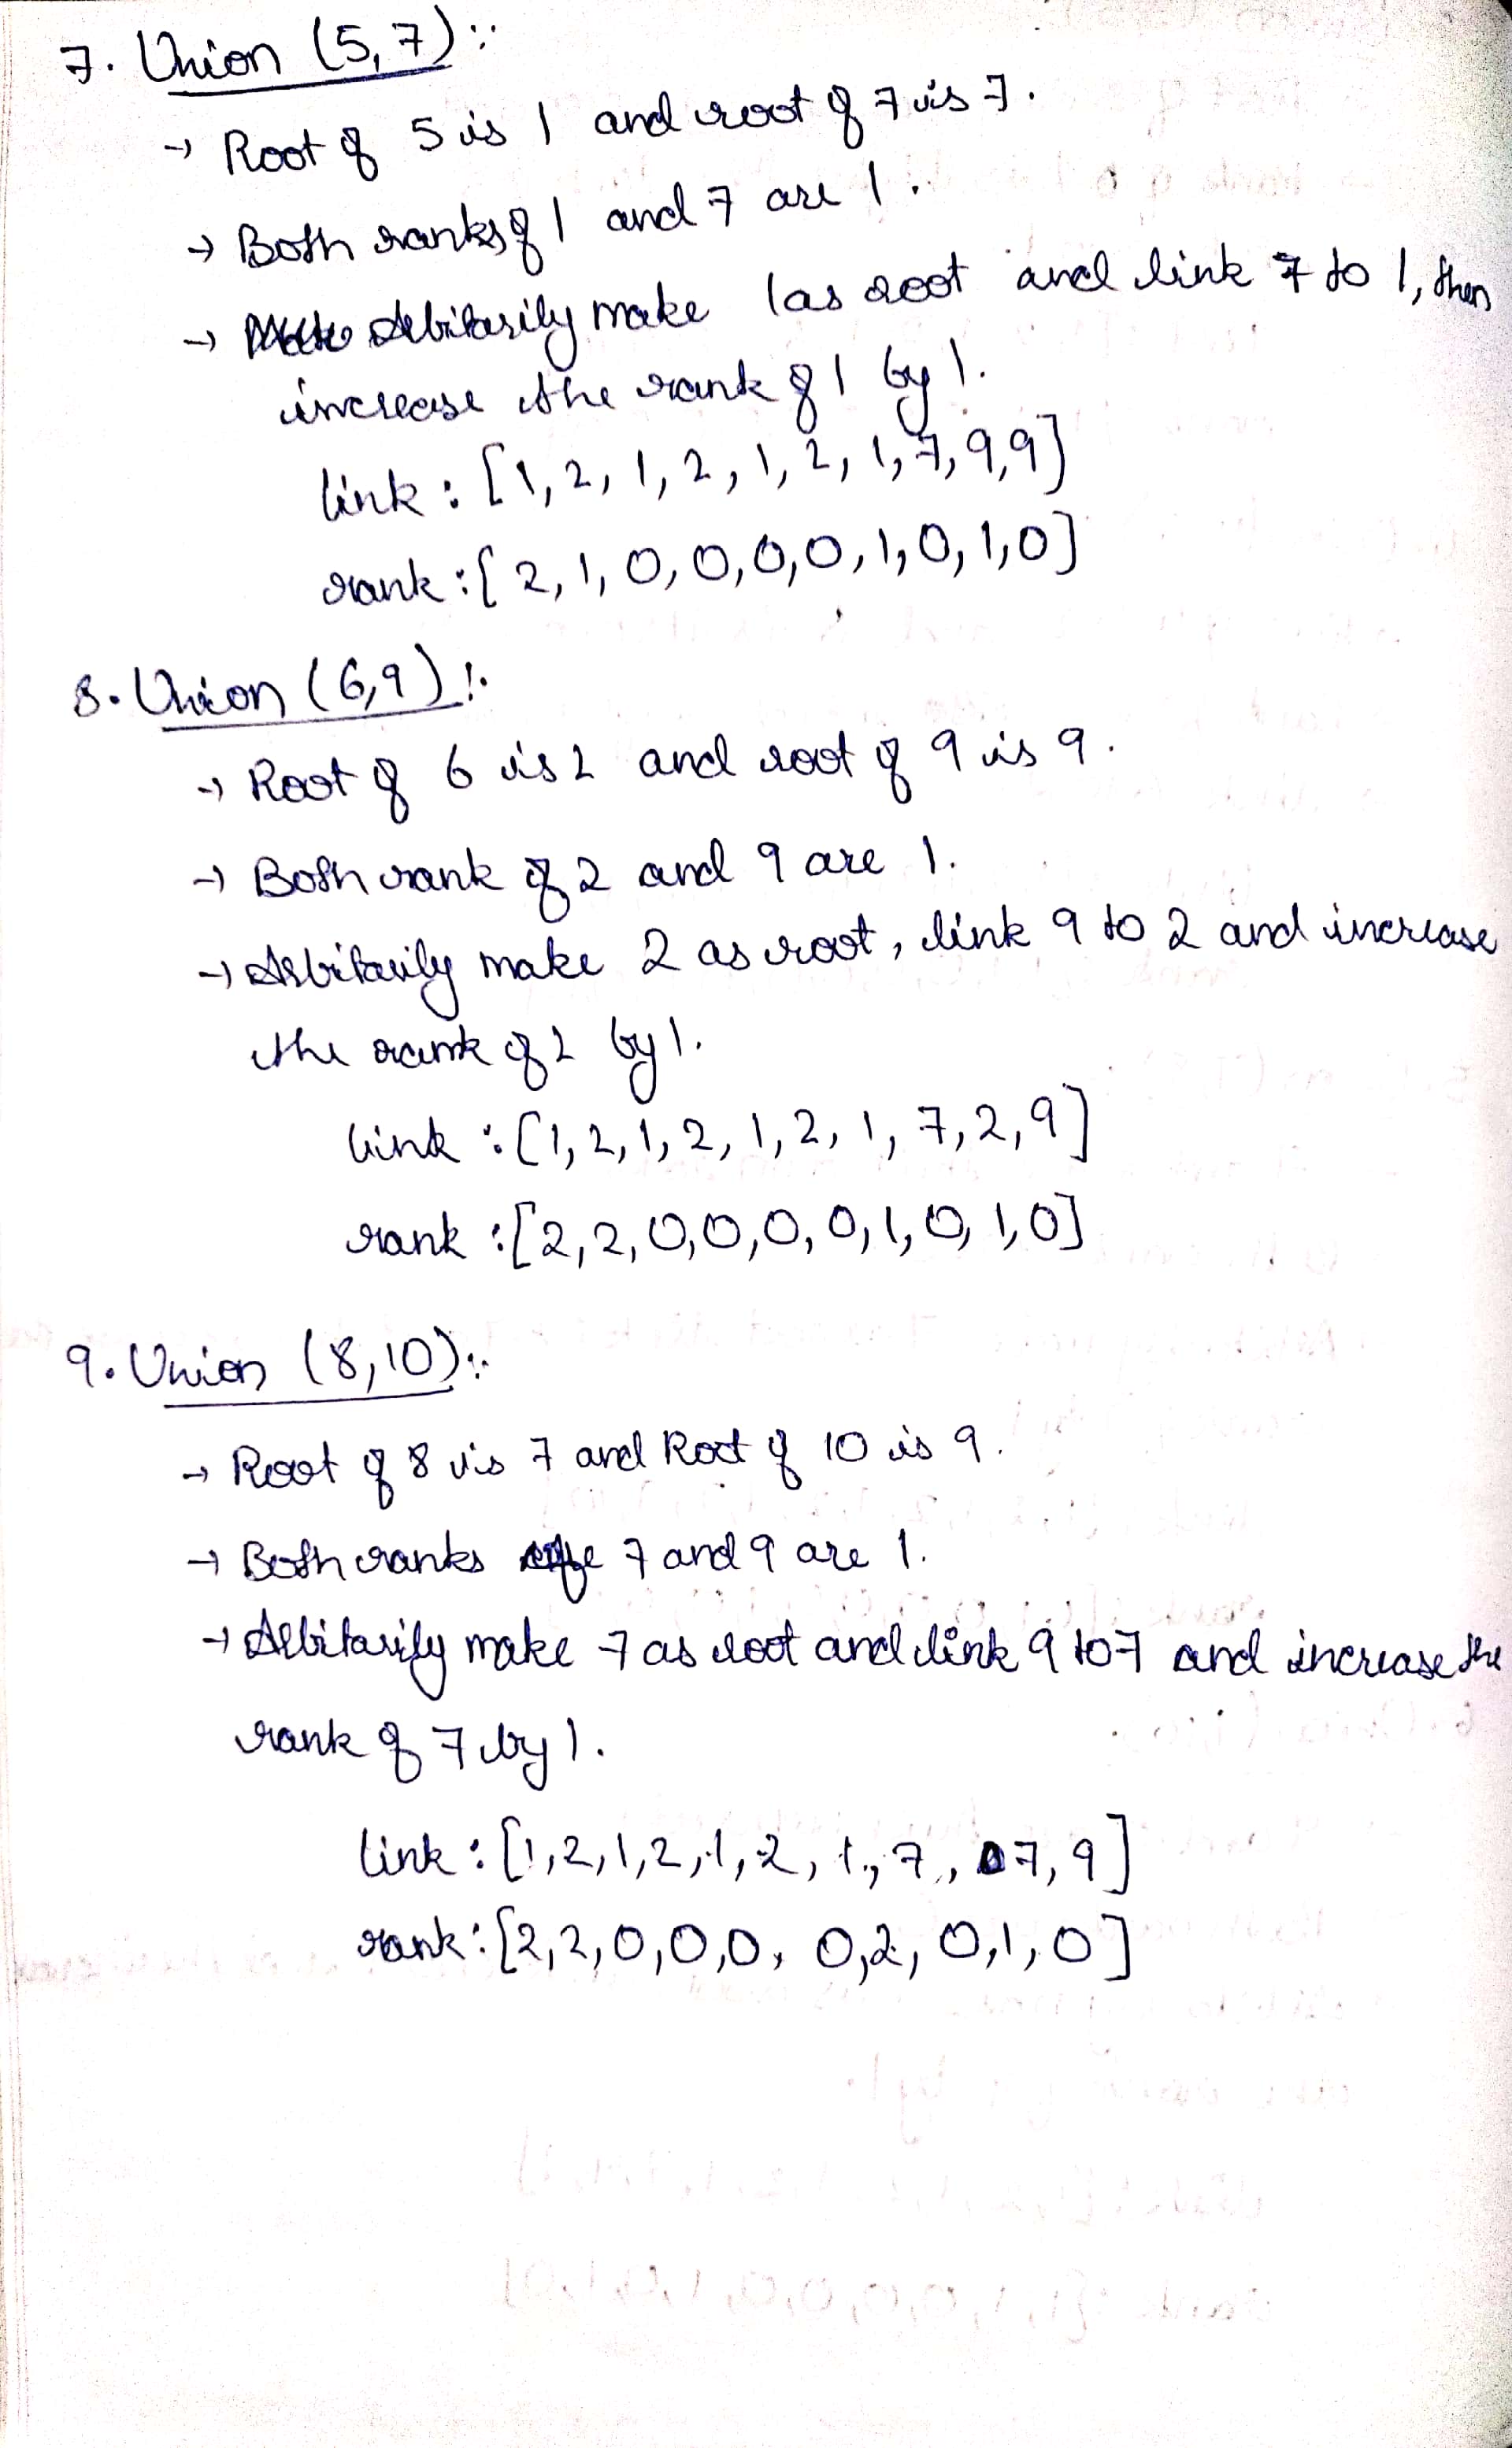 7. Union (5,7):
→ Root of 5 is 1 and root of 7 is 7.
→ Both ranks of 1 and 7 are 1.
→ Arbitarily make 1 as root and link 7 to 1, then
increase the rank of 1 by 1.
link : [1, 2, 1, 2, 1, 2, 1, 7, 9, 9]
rank : [2, 1, 0, 0, 0, 0, 1, 0, 1, 0]
8. Union (6,9):
→ Root of 6 is 2 and root of 9 is 9.
→ Both rank of 2 and 9 are 1.
→ Arbitarily make 2 as root, link 9 to 2 and increase
the rank of 2 by 1.
link : [1, 2, 1, 2, 1, 2, 1, 7, 2, 9]
rank : [2, 2, 0, 0, 0, 0, 1, 0, 1, 0]
9. Union (8,10):
→ Root of 8 is 7 and Root of 10 is 9.
→ Both ranks 7 and 9 are 1.
→ Arbitarily make 7 as root and link 9 to 7 and increase the
rank of 7 by 1.
link : [1, 2, 1, 2, 1, 2, 1, 7, 7, 9]
rank : [2, 2, 0, 0, 0, 0, 2, 0, 1, 0]